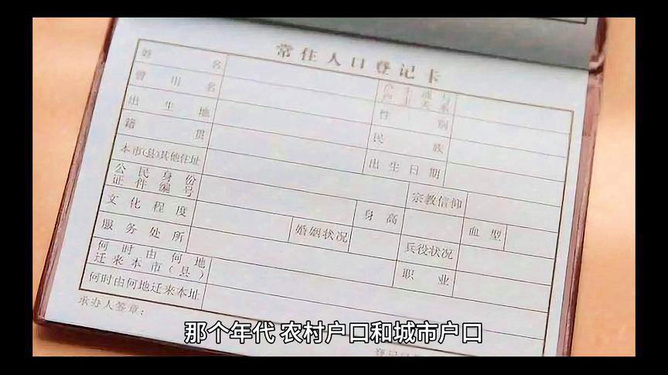 常住人口登记卡
姓名
户主或与户主关系
曾用名
性别
出生地
民族
籍贯
出生日期
本市(县)其他住址
宗教信仰
公民身份证件编号
身高
血型
文化程度
婚姻状况
兵役状况
服务处所
职业
何时由何地迁来本市(县)
何时由何地迁来本址
承办人签章:
那个年代 农村户口和城市户口